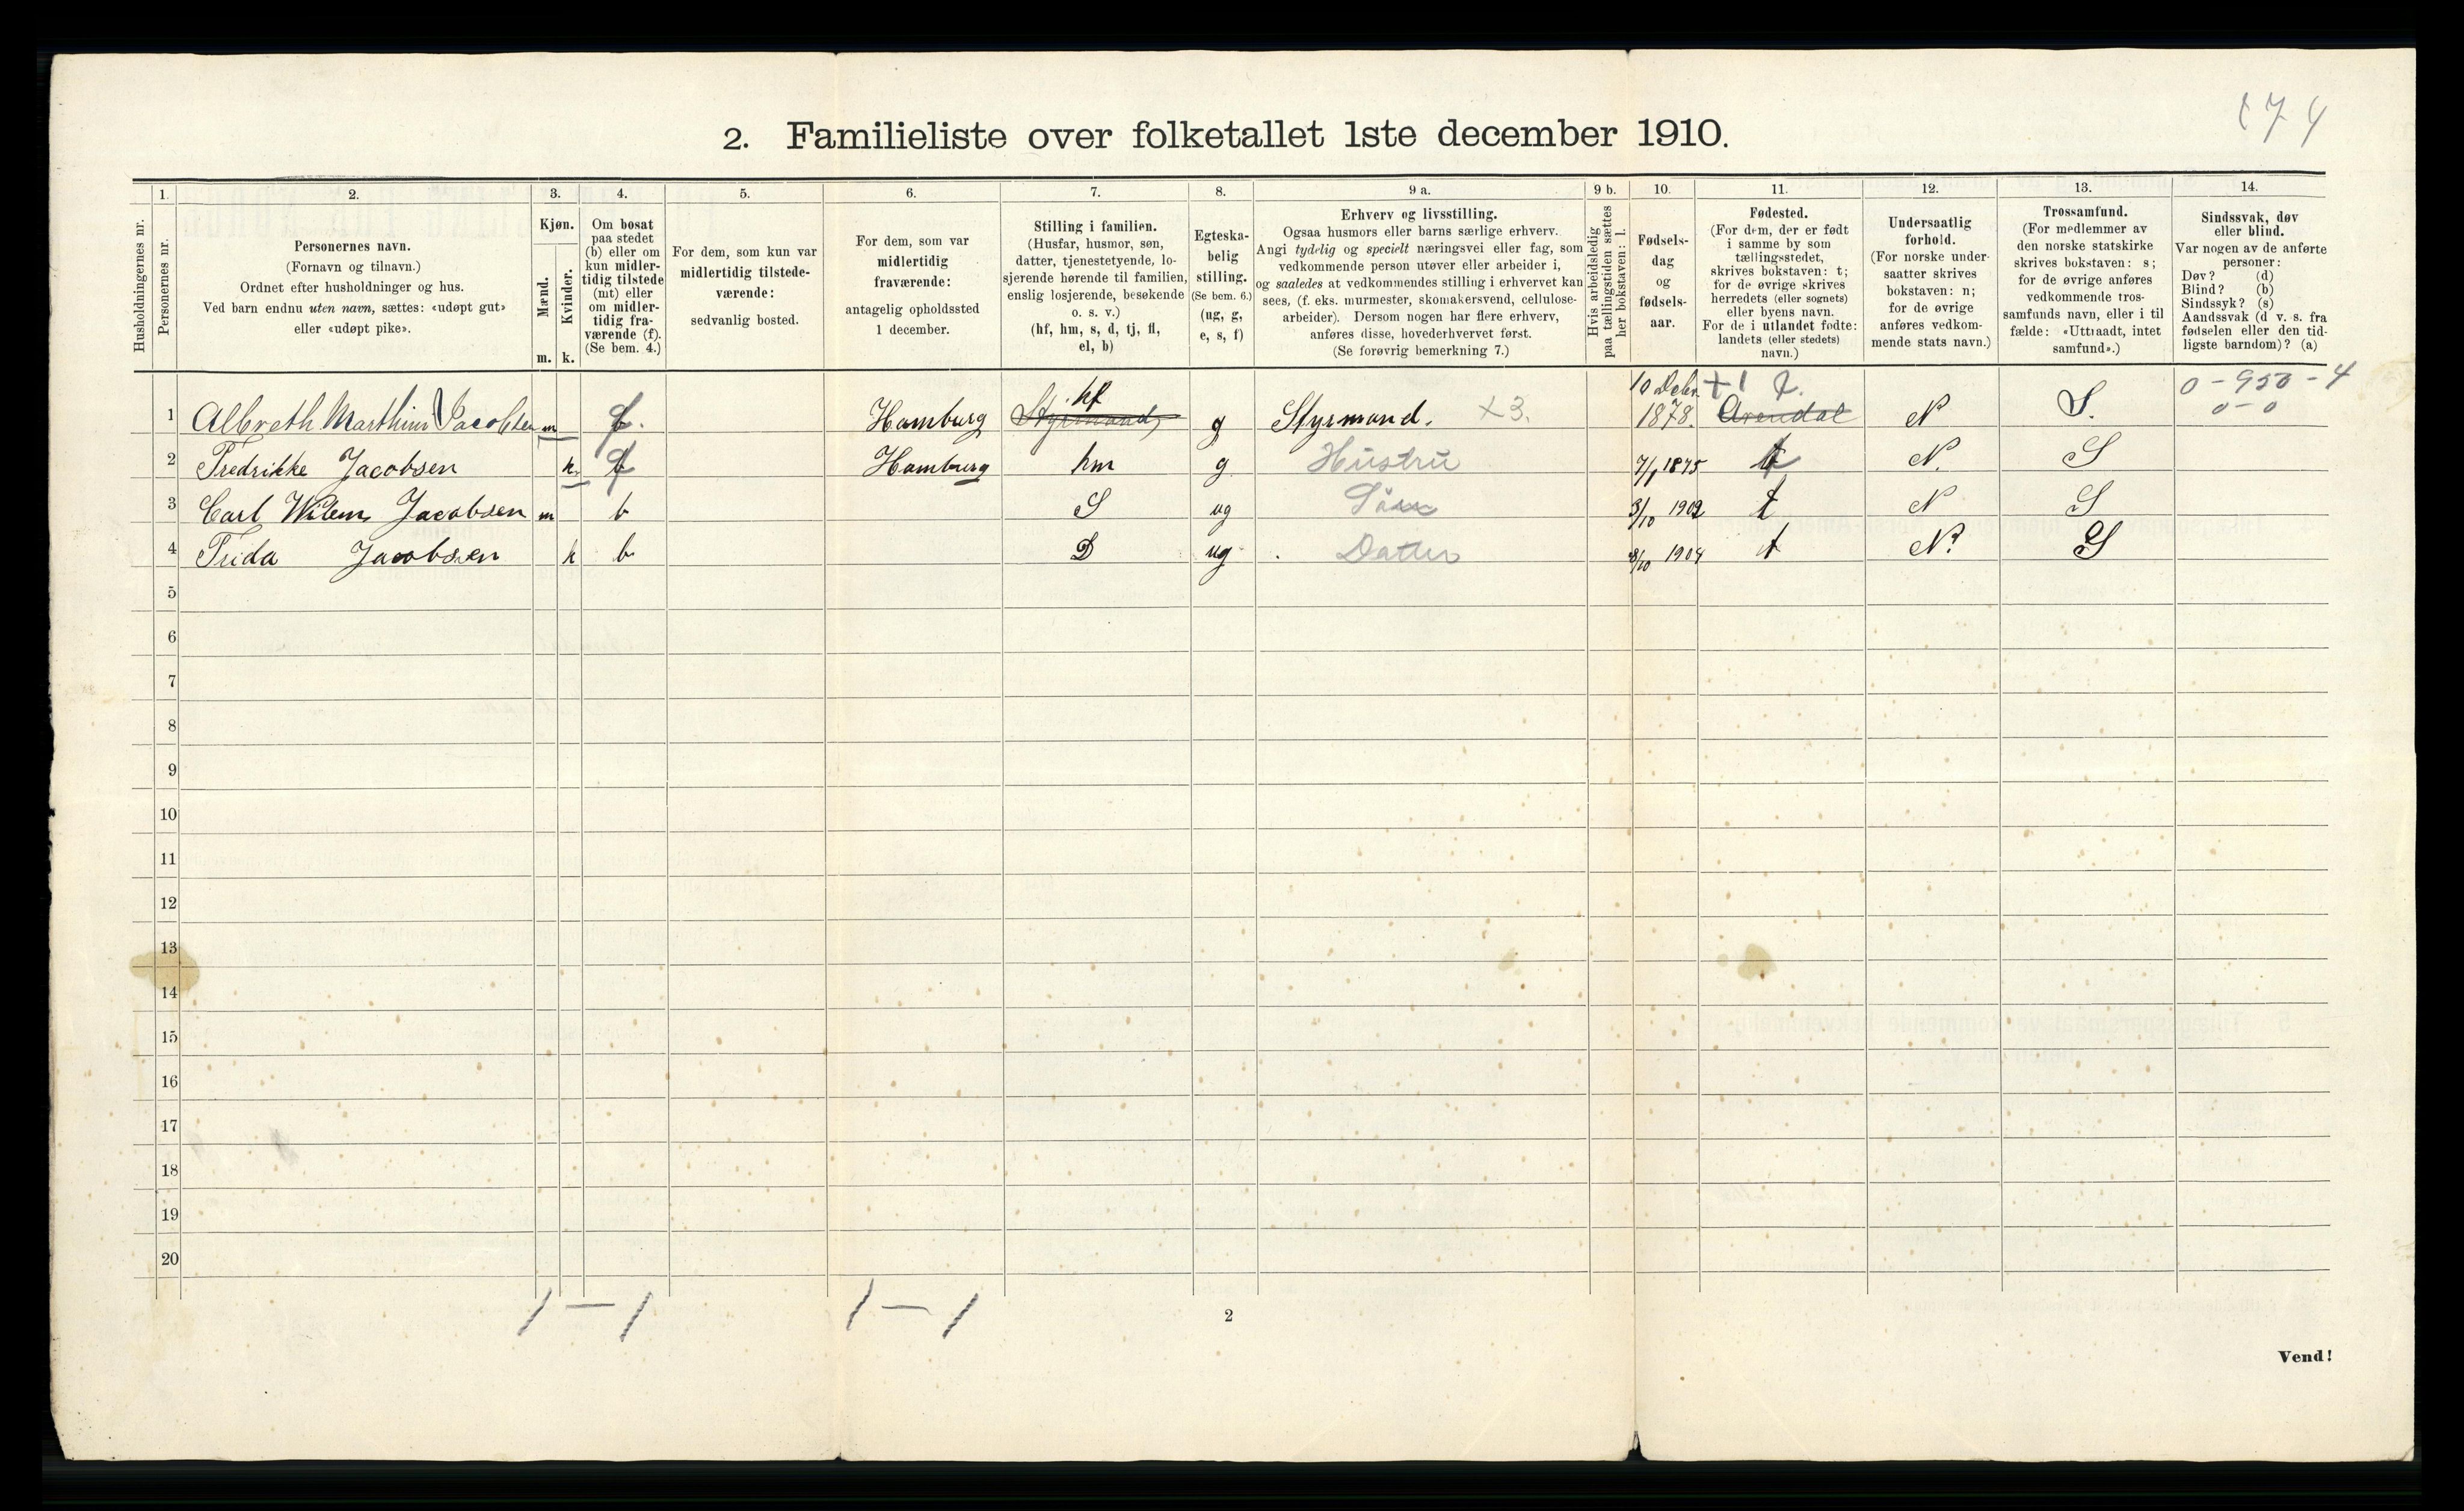 174
2. Familieliste over folketallet 1ste december 1910.
1. 2. 3. 4. 5. 6. 7. 8. 9 a. 9 b. 10. 11. 12. 13. 14.
Husholdningernes nr.
Personernes nr.
Personernes navn.
(Fornavn og tilnavn.)
Ordnet efter husholdninger og hus.
Ved barn endnu uten navn, sættes: «udøpt gut»
eller «udøpt pike».
Kjøn.
Mænd.
Kvinder.
m. k.
Om bosat
paa stedet
(b) eller om
kun midler-
tidig tilstede
(mt) eller
om midler-
tidig fra-
værende (f).
(Se bem. 4.)
For dem, som kun var
midlertidig tilstede-
værende:
sedvanlig bosted.
For dem, som var
midlertidig
fraværende:
antagelig opholdssted
1 december.
Stilling i familien.
(Husfar, husmor, søn,
datter, tjenestetyende, lo-
sjerende hørende til familien,
enslig losjerende, besøkende
o. s. v.)
(hf, hm, s, d, tj, fl,
el, b)
Egteska-
belig
stilling.
(Se bem. 6.)
(ug, g,
e, s, f)
Erhverv og livsstilling.
Ogsaa husmors eller barns særlige erhverv.
Angi tydelig og specielt næringsvei eller fag, som
vedkommende person utøver eller arbeider i,
og saaledes at vedkommendes stilling i erhvervet kan
sees, (f. eks. murmester, skomakersvend, cellulose-
arbeider). Dersom nogen har flere erhverv,
anføres disse, hovederhvervet først.
(Se forøvrig bemerkning 7.)
Hvis arbeidsledig
paa tællingstiden sættes
her bokstaven: l.
Fødsels-
dag
og
fødsels-
aar.
Fødested.
(For dem, der er født
i samme by som
tællingsstedet,
skrives bokstaven: t;
for de øvrige skrives
herredets (eller sognets)
eller byens navn.
For de i utlandet fødte:
landets (eller stedets)
navn.)
Undersaatlig
forhold.
(For norske under-
saatter skrives
bokstaven: n;
for de øvrige
anføres vedkom-
mende stats navn.)
Trossamfund.
(For medlemmer av
den norske statskirke
skrives bokstaven: s;
for de øvrige anføres
vedkommende tros-
samfunds navn, eller i til
fælde: «Uttraadt, intet
samfund».)
Sindssvak, døv
eller blind.
Var nogen av de anførte
personer:
Døv? (d)
Blind? (b)
Sindssyk? (s)
Aandssvak (d v. s. fra
fødselen eller den tid-
ligste barndom)? (a)
hf 10 Debr 0-950-4
1 Albreth Marthin Jacobsen m f. Hamburg Styrmand g Styrmand. x3. 1878. Arendal N S. 0-0
2 Fredrikke Jacobsen k f Hamburg hm g Hustru 7/1 1875 t N. S
3 Carl Wilem Jacobsen m b S ug Søn 3/10 1902 t N S
4 Frida Jacobsen k b D ug Datter 8/10 1904 t N. S
5
6
7
8
9
10
11
12
13
14
15
16
17
18
19
20
1 – 1 1 – 1
2
Vend!